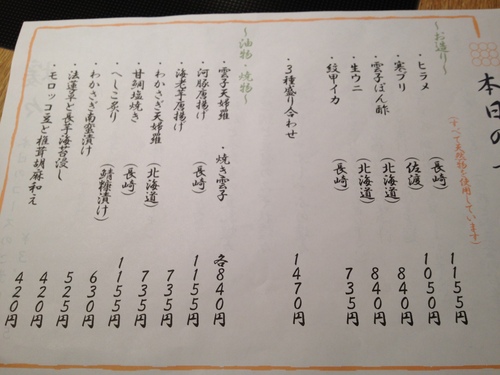 本日の
～お造り～
(すべて天然物を使用しています)
・ヒラメ (長崎) 1155円
・寒ブリ (佐渡) 1050円
・雲子ぽん酢 (北海道) 840円
・生ウニ (北海道) 840円
・紋甲イカ (長崎) 735円
・3種盛り合わせ 1470円
～油物・焼物～
・雲子天婦羅 ・焼き雲子 各840円
・河豚唐揚げ (長崎) 1155円
・海老芋唐揚げ 735円
・わかさぎ天婦羅 (北海道) 735円
・甘鯛塩焼き (長崎) 1155円
・へしこ炙り (鯖糠漬け) 630円
・わかさぎ南蛮漬け 525円
・法蓮草と長芋海苔浸し 420円
・モロッコ豆と椎茸胡麻和え 420円